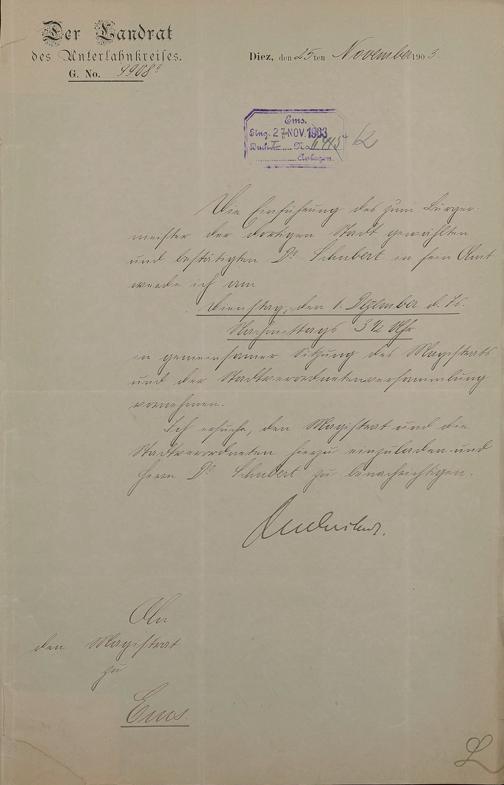 Der Landrat
des Unterlahnkreises.
G. No. 9908
Diez, den 25ten November 1903.
Ems.
Eing. 27 NOV. 1903
Anlagen
Die Einführung des zum Bürger-
meister der dortigen Stadt gewählten
und bestätigten Dr. Schubert in sein Amt
werde ich am
Dienstag, den 1. Dezember d. Js.
Nachmittags 3 1/2 Uhr
in gemeinsamer Sitzung des Magistrats
und der Stadtverordnetenversammlung
vornehmen.
Ich ersuche, den Magistrat und die
Stadtverordneten hierzu einzuladen und
Herrn Dr. Schubert zu benachrichtigen.
An
den Magistrat
zu
Ems.